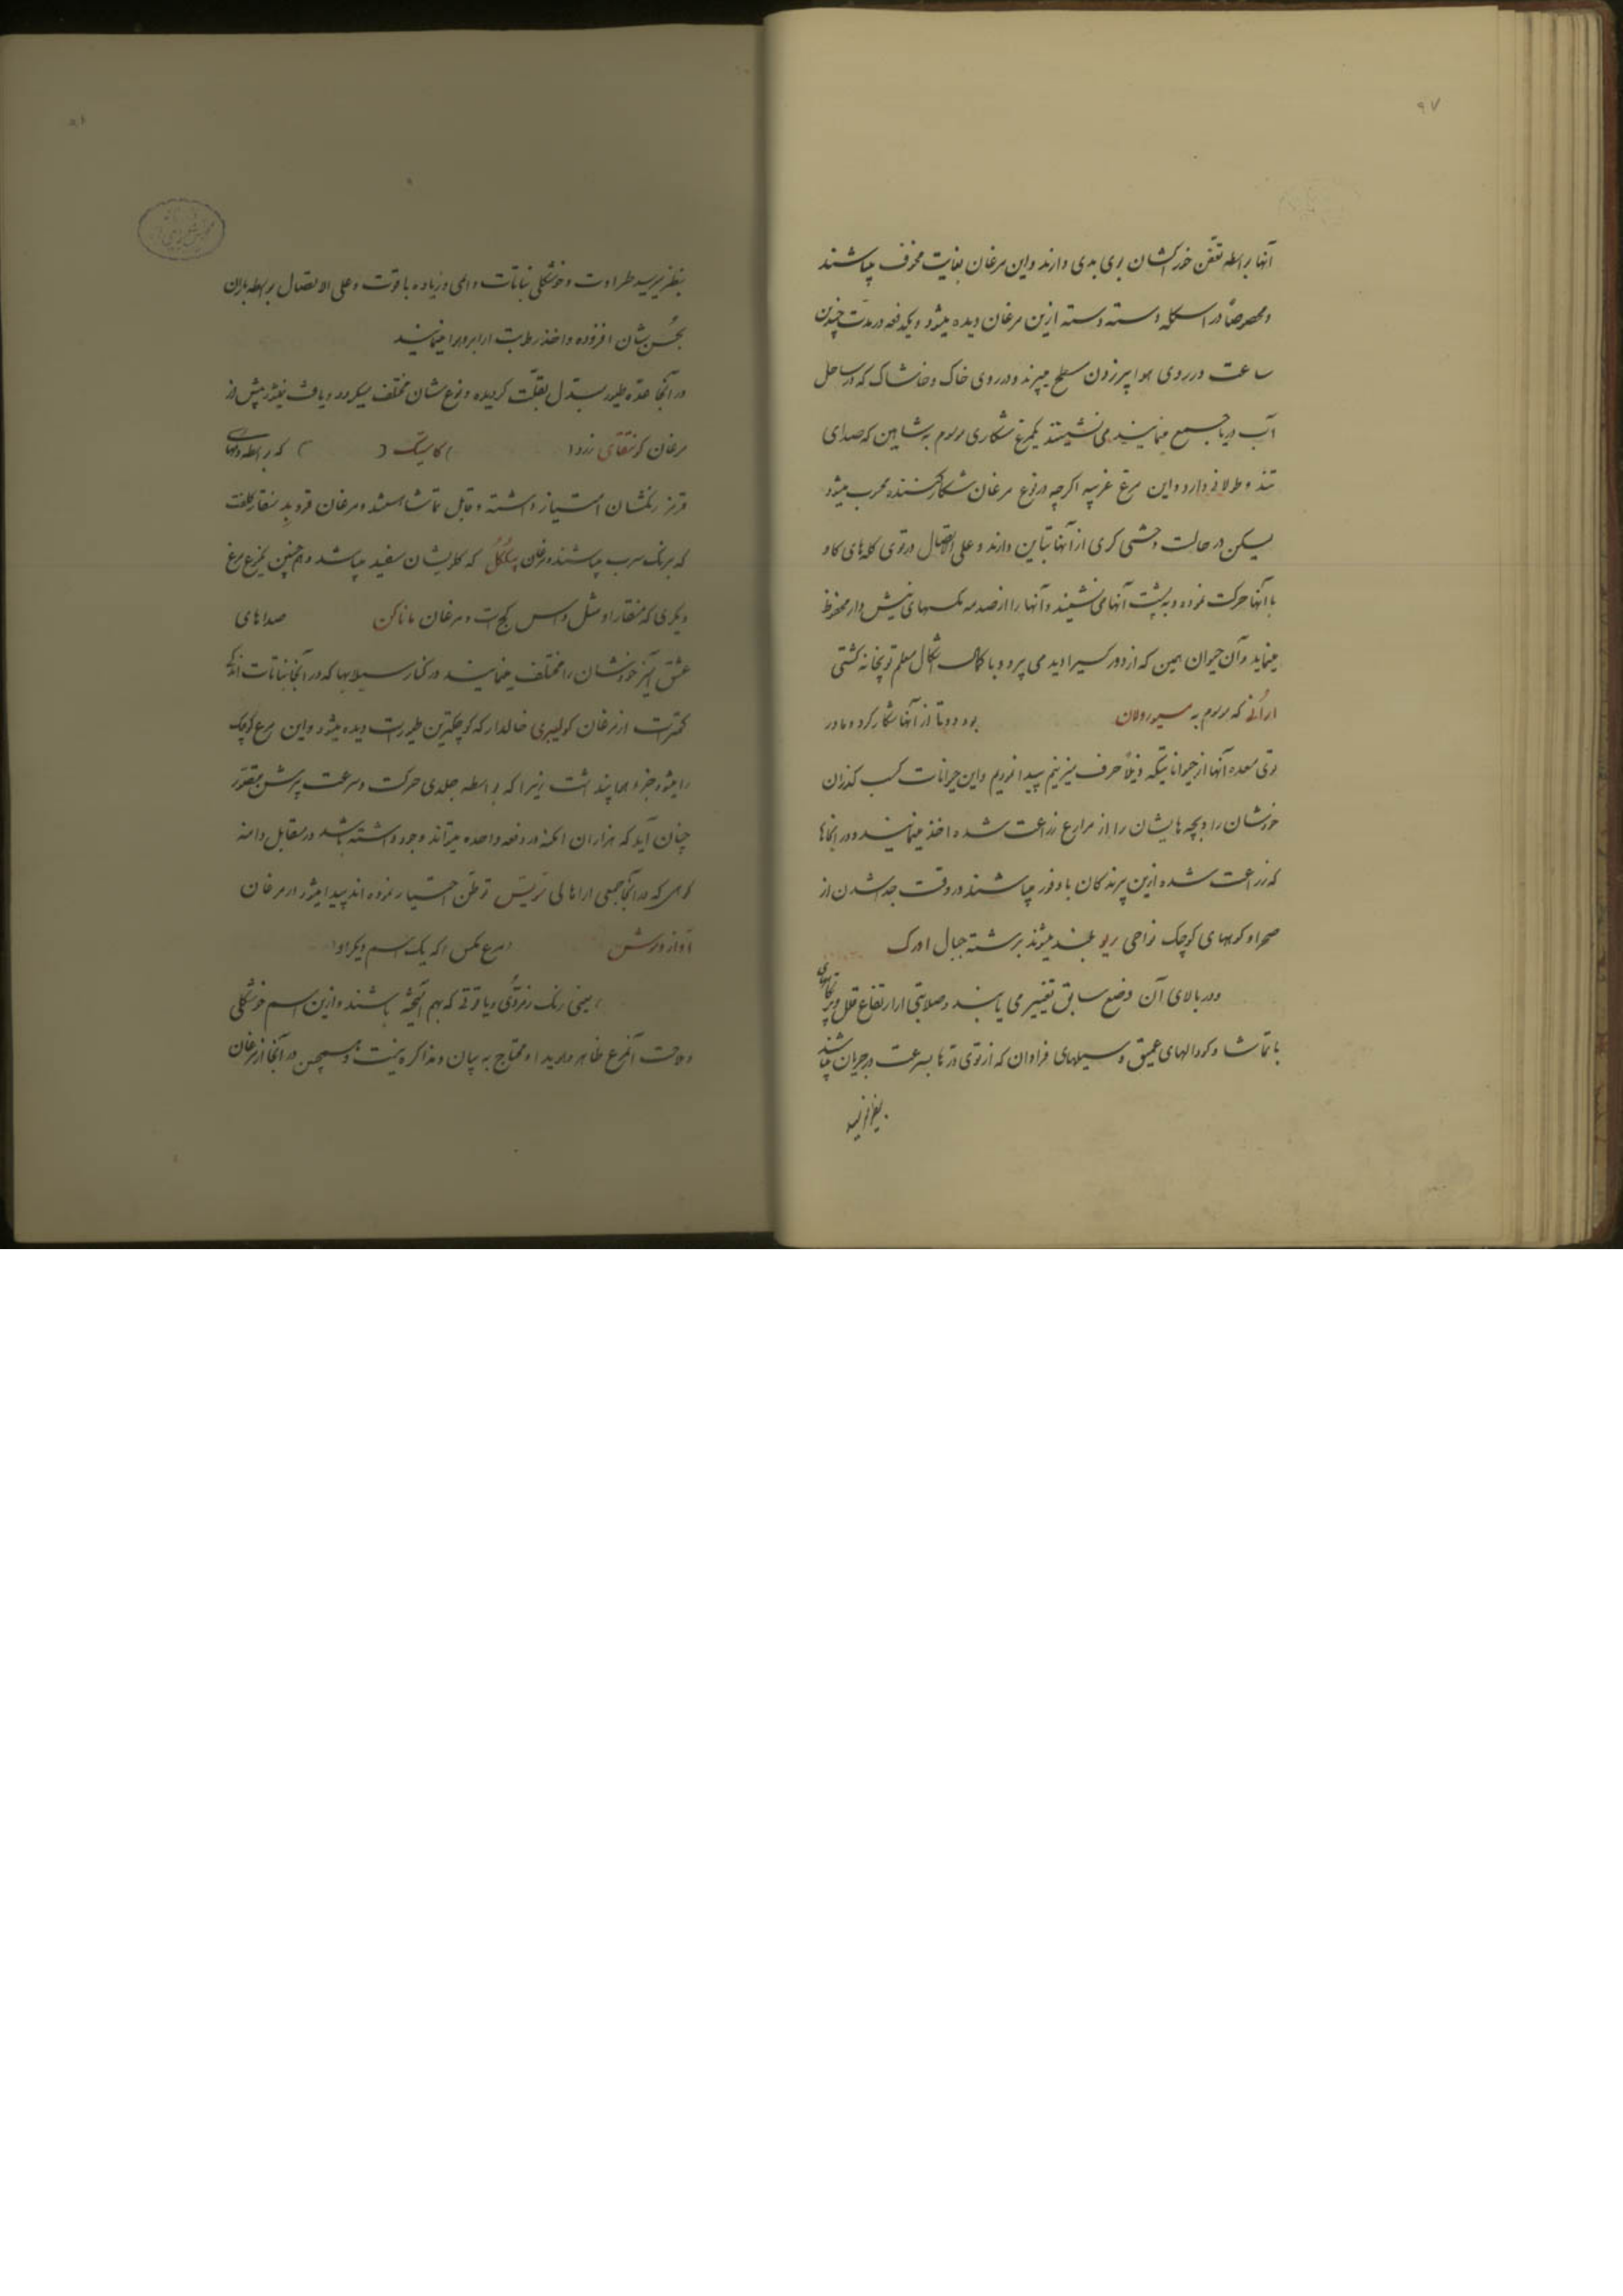 ۹۷
آنها بواسطه تعفن خوراکشان بوی بدی دارند و این مرغان بغایت مخوف میباشند
و مخصوصاً در اسکله دسته دسته ازین مرغان دیده میشود و یکدفعه در مدت چندین
ساعت در روی هوا بپر زدن مسطح میپرند و در روی خاک و خاشاک که در ساحل
آب دریا جمع مینمایند می نشینند یکمرغ شکاری موسوم به شاهین که صدای
تند و طولانی دارد و این مرغ غریبه اگرچه در نوع مرغان شکار کننده محسوب میشود
لیکن در حالت وحشی گری از آنها تباین دارند و علی الاتصال در توی گله های گاو
با آنها حرکت نموده و به پشت آنها می نشینند و آنها را از صدمه مگسهای نیش دار محفوظ
مینماید و آن حیوان همین که از دور کسیرا دید می پرد و با کمال اشکال معلم توپخانه کشتی
که موسوم به بود دو تا از آنها شکار کرد و ما در
توی معده آنها از حیواناتیکه ذیلاً حرف میزنیم پیدا نمودیم و این حیوانات کسب گذران
خودشان را و بچه هایشان را از مزارع زراعت شده اخذ مینمایند و در آنجاها
که زراعت شده ازین پرندگان با وفور میباشند در وقت جدا شدن از
صحرا و کوههای کوچک نواحی ریو بلند میشوند برشته جبال ارک
و در بالای آن وضع سابق تغییر می یابند و صلابتی از ارتفاع قلل و
با تماشا و گودالهای عمیق و سیلهای فراوان که از توی دره ها بسرعت در جریان میباشند
بنظر میرسد
بنظر میرسد طراوت و خوشگلی نباتات دائمی و زیاده با قوت و علی الاتصال بواسطه باران
بحسن شان افزوده و اخذ رطوبت از ابر و هوا مینمایند
در آنجا عده طیور مبدل بقلت گردیده و نوع شان مختلف میگردد و یافت میشود پیش از
مرغان کونتقای زرد ( ) کاسیک ( ) که بواسطه
قرمز رنگشان امتیاز داشته و قابل تماشا هستند و مرغان منقار کلفت
که برنگ سرب میباشند و مرغان که گلویشان سفید میباشد و همچنین یکنوع مرغ
دیگری که منقار او مثل داس کج است و مرغان ماناکن صداهای
عشق آمیز خودشان را مختلف مینمایند در کنار سیلابها که در آنجا نباتات
کمتر است از مرغان کولیبری خالدار که کوچکترین طیور است دیده میشود و این مرغ کوچک
را میشود جزو هما پنداشت زیرا که بواسطه جلدی حرکت و سرعت پرش بتصور
چنان آید که هزاران امکنه در دفعه واحده میتواند وجود داشته باشد در مقابل دامنه
کوهی که در آنجا جمعی از اهالی توطن اختیار نموده اند پیدا میشود از مرغان
(مرغ مگس) که یک اسم دیگر او
یعنی رنگ زمردی و یاقوتی که بهم آمیخته باشند و ازین اسم خوشگلی
و ملاحت آنمرغ ظاهر و هویدا و محتاج به بیان و مذاکره نیست و همچنین در آنجا از مرغان